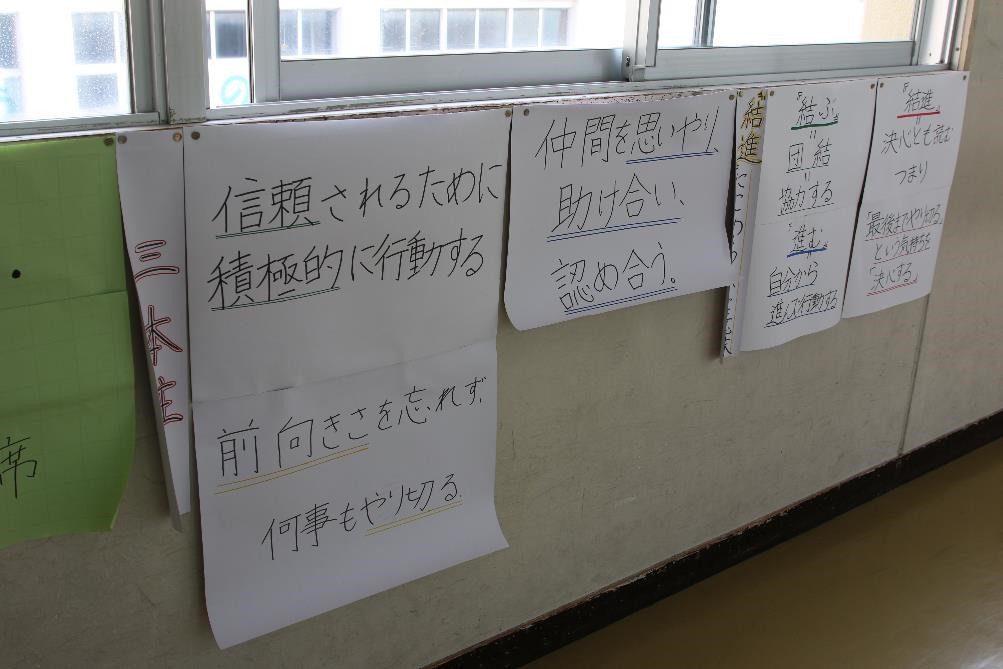 席
三本柱
信頼されるために
積極的に行動する
前向きさを忘れず、
何事もやり切る。
仲間を思いやり、
助け合い、
認め合う。
結進
『結ぶ』
=
団結
=
協力する
『進む』
=
自分から
進んで行動する
『結進』
=
決心とも読む
つまり
最後までやり切る
という気持ちを
「決心する」
の